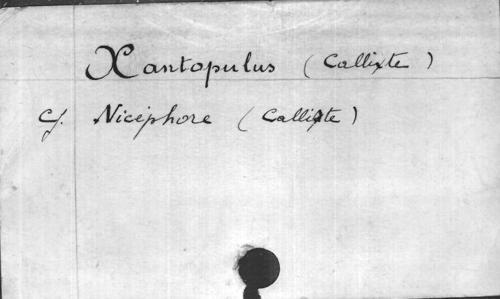 Xantopulus (Callixte)
cf. Nicéphore (Callixte)